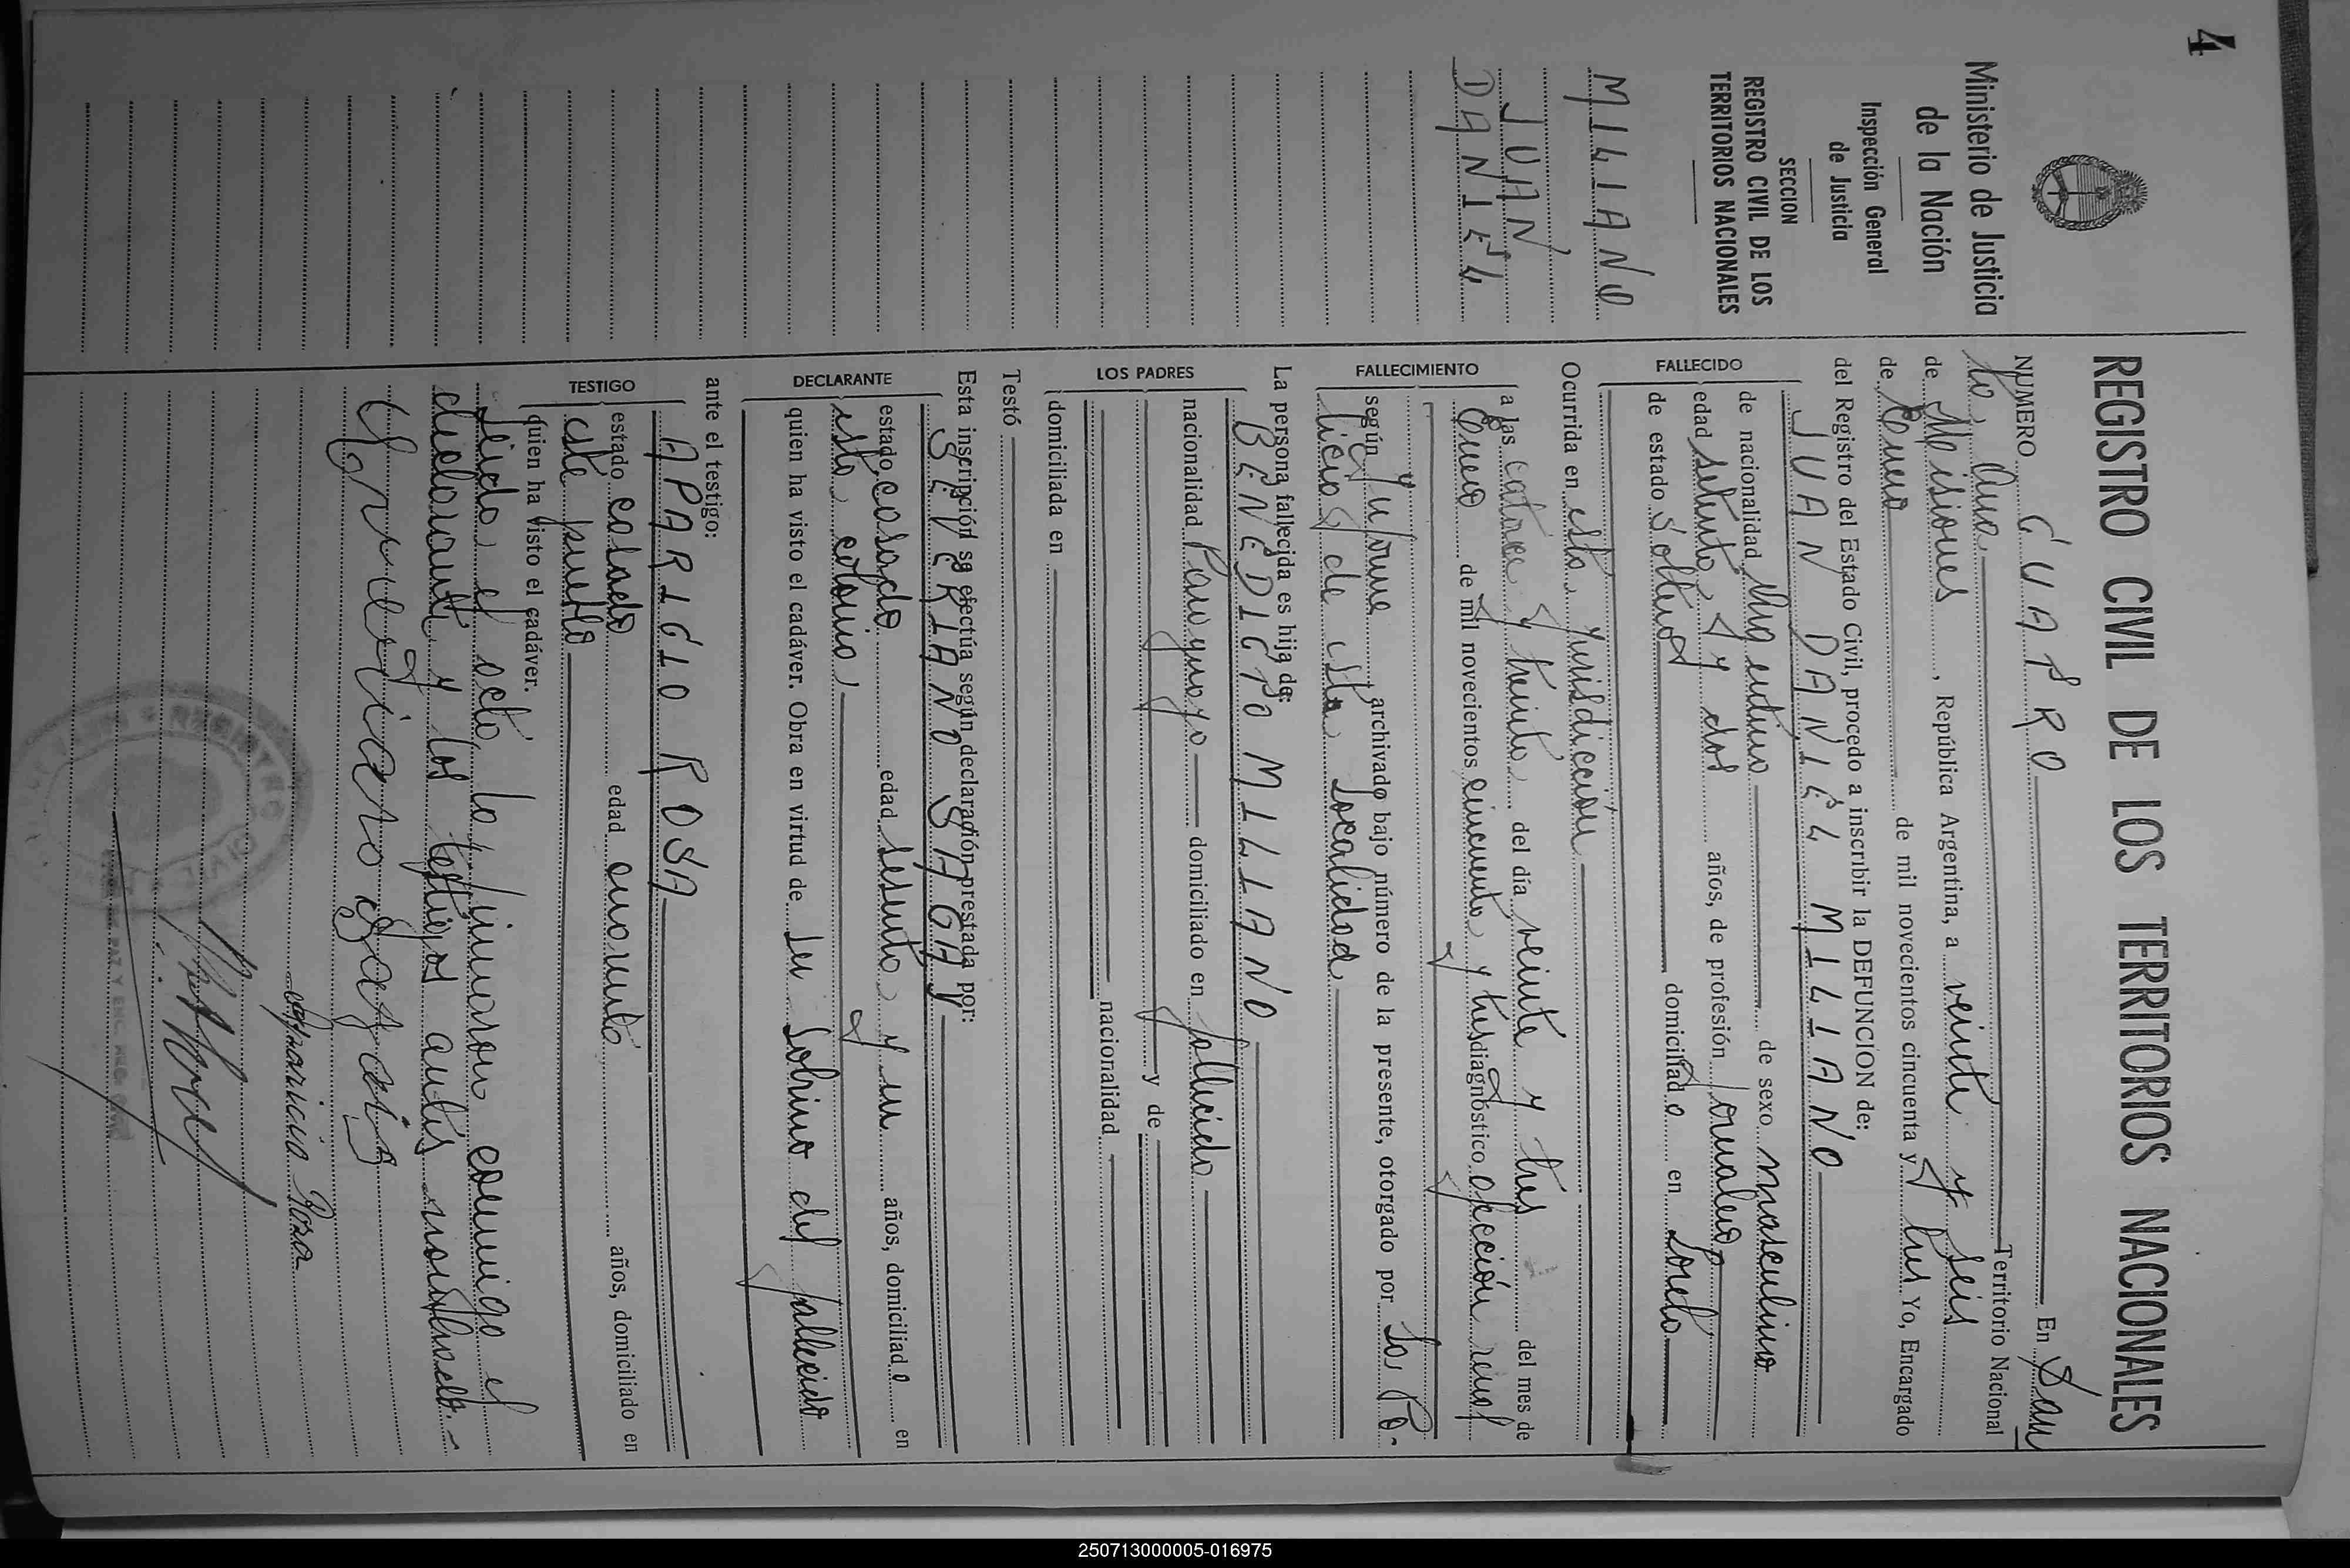 4
Ministerio de Justicia
de la Nación
Inspección General
de Justicia
SECCION
REGISTRO CIVIL DE LOS
TERRITORIOS NACIONALES
MILIANO
JUAN
DANIEL
REGISTRO CIVIL DE LOS TERRITORIOS NACIONALES
NUMERO CUATRO En San
ta Ana Territorio Nacional
de Misiones, República Argentina, a veinte y seis
de Enero de mil novecientos cincuenta y tres Yo, Encargado
del Registro del Estado Civil, procedo a inscribir la DEFUNCION de:
FALLECIDO
JUAN DANIEL MILIANO
de nacionalidad Argentino de sexo masculino
edad setenta y dos años, de profesión jornalero
de estado soltero domiciliado en Loreto
Ocurrida en esta jurisdicción
FALLECIMIENTO
a las catorce y treinta del día veinte y tres del mes de
Enero de mil novecientos cincuenta y tres diagnóstico afección renal
según informe archivado bajo número de la presente, otorgado por La Po-
licia de esta Localidad
La persona fallecida es hija de:
LOS PADRES
BENEDICTO MILIANO
nacionalidad Paraguayo domiciliado en fallecido
y de
nacionalidad
domiciliada en
Testó
Esta inscripción se efectúa según declaración prestada por:
DECLARANTE
SEVERIANO SAGAY
estado casado edad sesenta y un años, domiciliado en
esta colonia
quien ha visto el cadáver. Obra en virtud de ser sobrino del fallecido
ante el testigo:
TESTIGO
APARICIO ROSA
estado casado edad cuarenta años, domiciliado en
este pueblo
quien ha visto el cadáver.
Leída el acta, la firmaron conmigo el
declarante y los testigos antes nombrado.-
aparicio Rosa
REGISTRO CIVIL
250713000005-016975